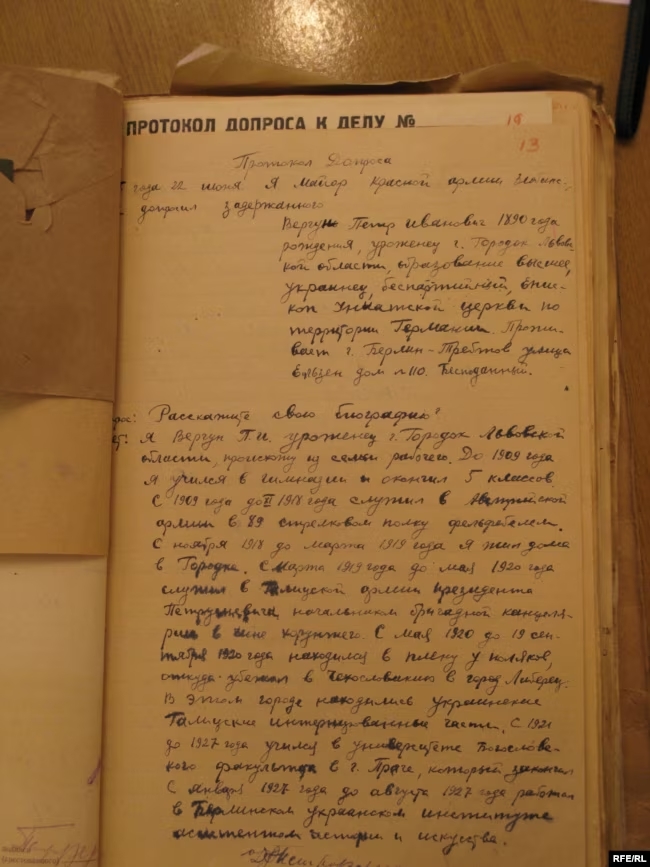 ПРОТОКОЛ ДОПРОСА К ДЕЛУ №
19
13
Протокол Допроса
года 22 июня Я майор Красной армии
допросил задержанного
Вергун Петр Иванович 1890 года
рождения, уроженец г. Городок Львовс-
кой области, образование высшее,
украинец, беспартийный, Епис-
коп Униатской церкви по
территории Германии. Прожи-
вает г. Берлин-Трептов улица
дом №110. Бесподанный.
рос: Расскажите свою биографию?
ет: Я Вергун П.И. уроженец г. Городок Львовской
области, происхожу из семьи рабочего. До 1909 года
я учился в гимназии и окончил 5 классов.
С 1909 года до 1918 года служил в Австрийской
армии в 89 стрелковом полку фельдфебелем.
С ноября 1918 до марта 1919 года я жил дома
в Городке. С марта 1919 года до мая 1920 года
служил в Галицкой армии президента
Петрушевича начальником бригадной канцеля-
рии в чине хорунжего. С мая 1920 до 19 сен-
тября 1920 года находился в плену у поляков,
откуда убежал в Чехословакию в город Либерец.
В этом городе находились украинские
Галицкие интернированные части. С 1921
до 1927 года учился в университете Богословс-
кого факультета в г. Праге, который закончил
С января 1927 года до августа 1927 года работал
в Берлинском украинском институте
ассистентом истории и искусства.
RFE/RL